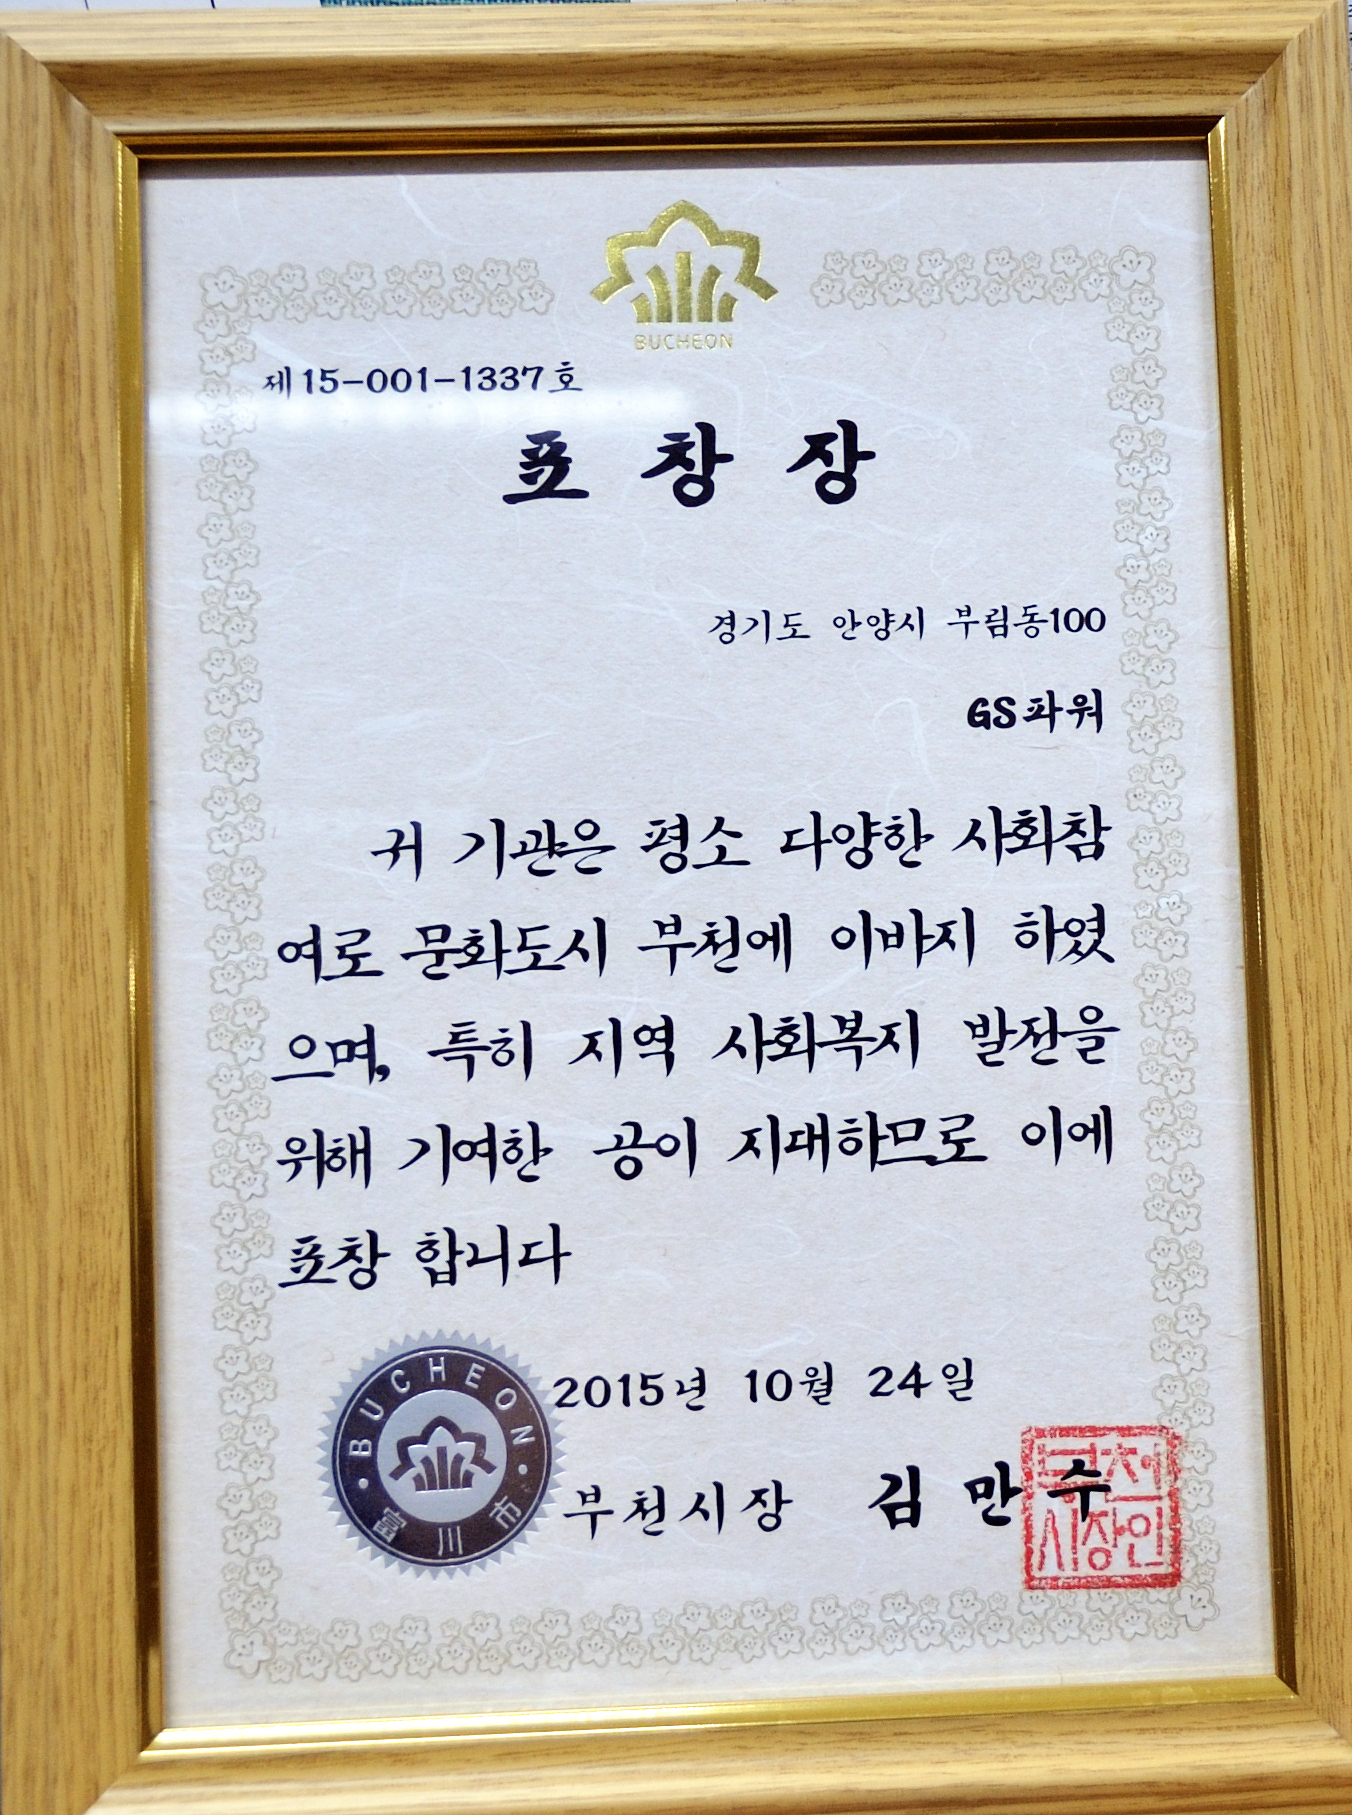 BUCHEON
제15-001-1337호
표 창 장
경기도 안양시 부림동100
GS파워
귀 기관은 평소 다양한 사회참
여로 문화도시 부천에 이바지 하였
으며, 특히 지역 사회복지 발전을
위해 기여한 공이 지대하므로 이에
표창 합니다
2015년 10월 24일
부천시장 김만수
BUCHEON
富川市
부천
시장인